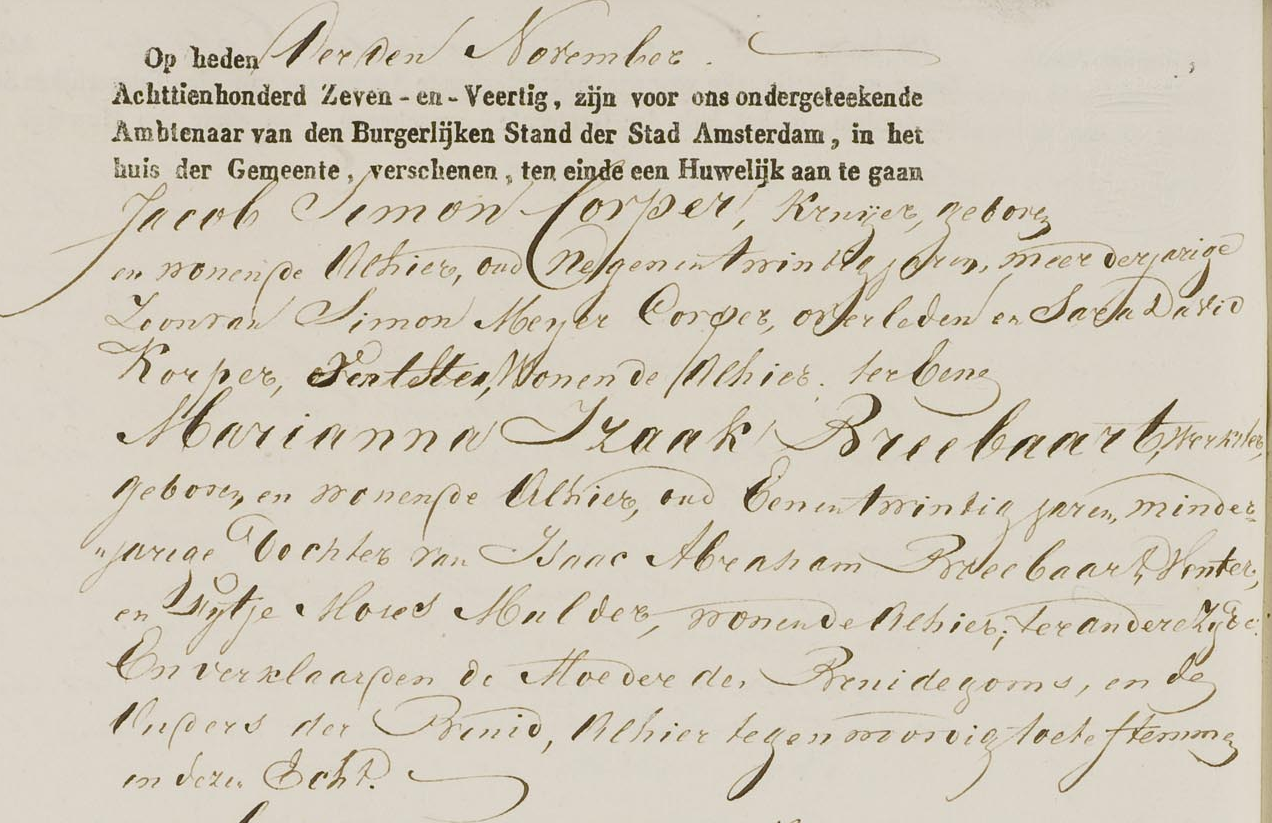 Op heden Derden November.
Achttienhonderd Zeven-en-Veertig, zijn voor ons ondergeteekende
Ambtenaar van den Burgerlijken Stand der Stad Amsterdam, in het
huis der Gemeente, verschenen, ten einde een Huwelijk aan te gaan
Jacob Simon Corper, Kruijer, geboren
en wonende Alhier, oud Negenentwintig jaren, meerderjarige
Zoon van Simon Meyer Corper, overleden en Sara David
Korper, Ventster, Wonende Alhier. ter Eene
Marianna Izaak Breebaart, Werkster,
geboren en wonende Alhier, oud Eenentwintig jaren, minder-
"jarige Dochter van Isaac Abraham Breebaart, Venter,
en Sijtje Moses Mulder, wonende Alhier; ter andere Zyde.
En verklaarden de Moeder des Bruidegoms, en de
Ouders der Bruid, Alhier tegenwoordig toetestemmen
in dezen Echt.